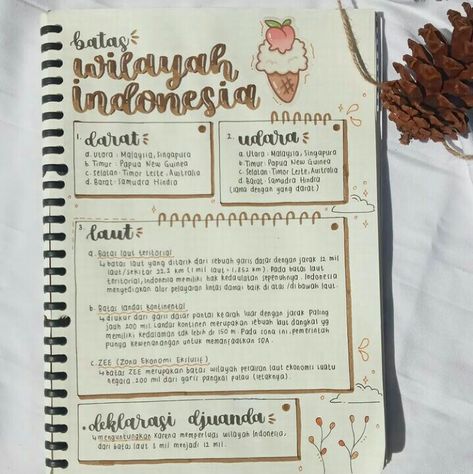 batas
wilayah
indonesia
1. darat
a. Utara : Malaysia, Singapura
b. Timur : Papua New Guinea
c. Selatan : Timor Leste, Australia
d. Barat : Samudra Hindia
2. udara
a. Utara : Malaysia, Singapura
b. Timur : Papua New Guinea
c. Selatan : Timor Leste, Australia
d. Barat : Samudra Hindia
(sama dengan yang darat)
3. laut
a. Batas laut teritorial
↳ batas laut yang ditarik dari sebuah garis dasar dengan jarak 12 mil
laut/sekitar 22.2 km (1 mil laut = 1.852 km). Pada batas laut
teritorial, Indonesia memiliki hak kedaulatan sepenuhnya. Indonesia
menyediakan alur pelayaran lintas damai baik di atas/di bawah laut.
b. Batas landas kontinental
↳ diukur dari garis dasar pantai kearah luar dengan jarak paling
jauh 200 mil. Landas kontinen merupakan sebuah laut dangkal yg
memiliki kedalaman tak lebih dr 150 m. Pada zona ini, pemerintah
punya kewenangan untuk memanfaatkan SDA.
c. ZEE (Zona Ekonomi Eksklusif)
↳ batas ZEE merupakan batas wilayah perairan laut ekonomi suatu
negara. 200 mil dari garis pangkal pulau (letaknya).
• deklarasi djuanda
↳ menguntungkan karena memperluas wilayah Indonesia,
dari batas laut 3 mil menjadi 12 mil.